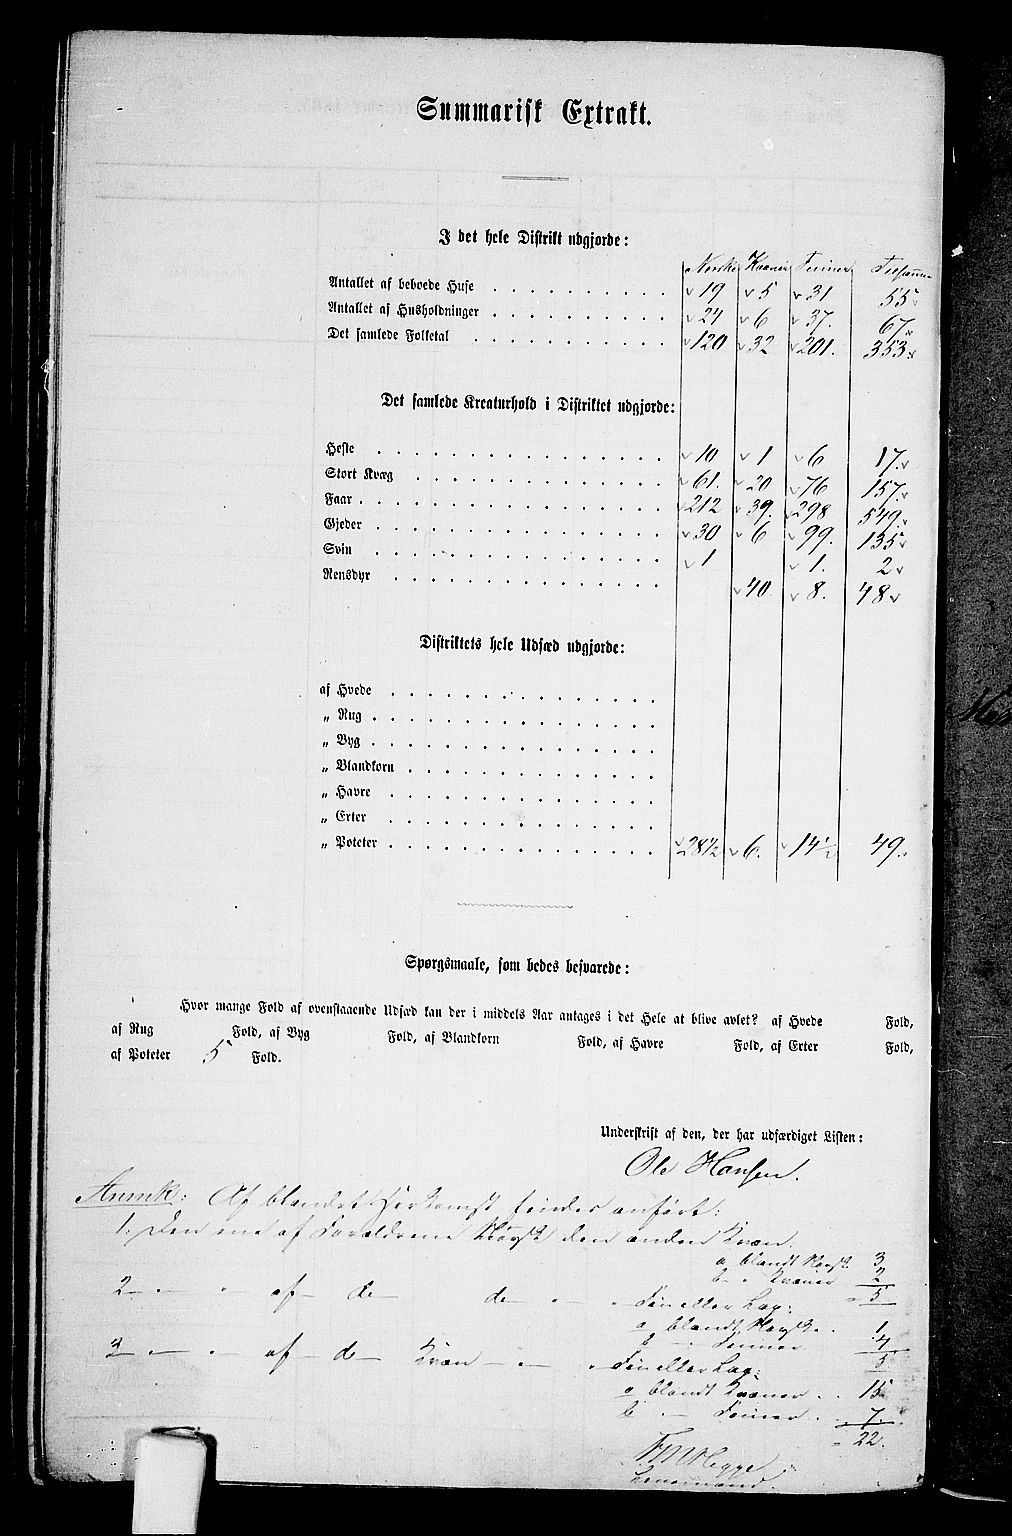 Summarisk Extrakt.
I det hele Distrikt udgjorde:
Norske Kvæner Finner Tilsammen
Antallet af beboede Huse 19 5 31 55
Antallet af Husholdninger 24 6 37. 67
Det samlede Folketal 120 32 201. 353
Det samlede Kreaturhold i Distriktet udgjorde:
Heste 10 1 6 17
Stort Kvæg 61. 20 76 157
Faar 212 39. 298 549
Gjeder 30 6 99. 135
Svin 1 1. 2
Rensdyr 40 8. 48
Distriktets hele Udsæd udgjorde:
af Hvede
„ Rug
„ Byg
„ Blandkorn
„ Havre
„ Erter
„ Poteter 28½ 6. 14½ 49.
Spørgsmaale, som bedes besvarede:
Hvor mange Fold af ovenstaaende Udsæd kan der i middels Aar antages i det Hele at blive avlet? af Hvede Fold,
af Rug Fold, af Byg Fold, af Blandkorn Fold, af Havre Fold, af Erter Fold,
af Poteter 5 Fold.
Underskrift af den, der har udfærdiget Listen:
Ole Hansen.
Anmk: Af blandet Herkomst findes anført:
1. Den ene af Forældrene Norsk den anden Kvæn.
a, blandt Norsk. 3
b — „ Kvæner 2
5
2 — „ — „ af — de — de — „ — „ Fin eller Lap:
a, blandt Norske . 1
b „ — Finner 4
5
3 — „ — „ af — de — Kvæn — „ — „ Fin eller Lap:
a blandt Kvæner . . 15
b — Finner . . 7.
22.
Lensmand.